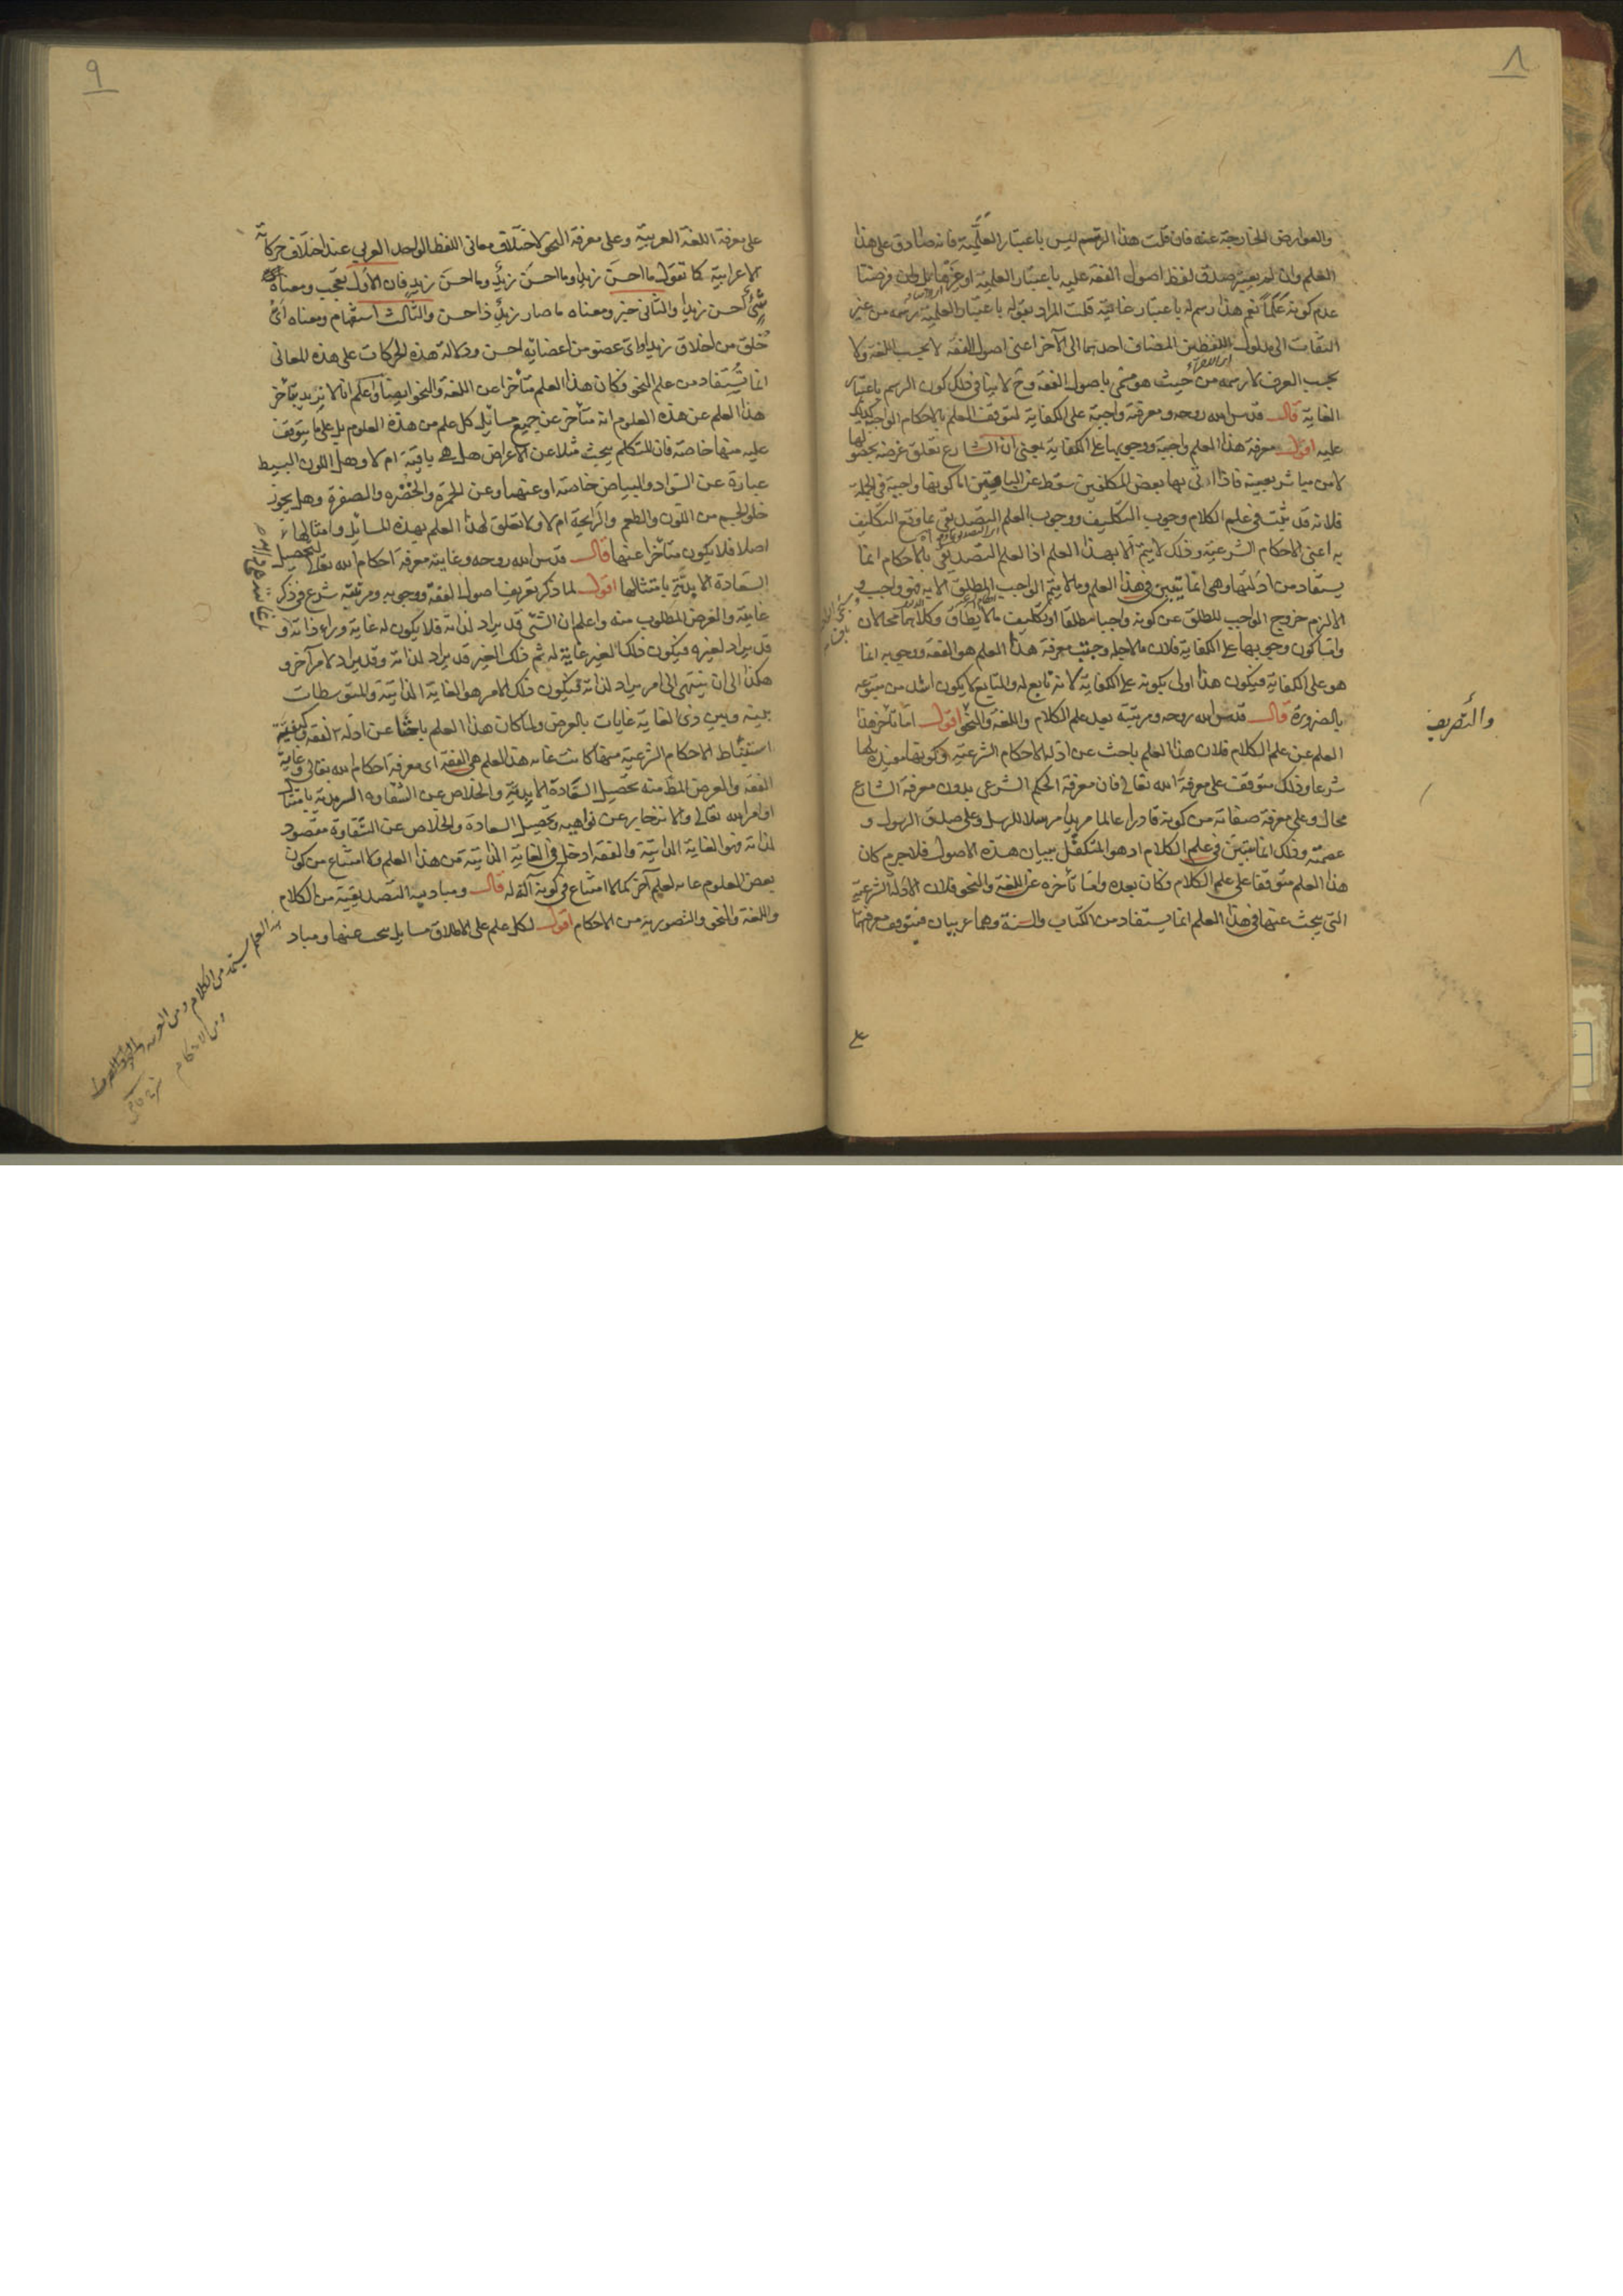 ٨
والعوارض الخارجة عنه فان قلت هذا الرسم ليس باعتبار العلمية فانه صادق على هذا
العلم وان لم يعتبر صدق لفظ اصول الفقه عليه باعتبار العلمية او غيرها بل ولن فرضنا
عدم كونه علما نعم هذا رسم له باعتبار غايته قلت المراد بقوله باعتبار العلمية رسمه من غير
التفات الى مدلول اللفظين المضاف احدهما الى الآخر اعنى اصول الفقه لا بحسب اللغة ولا
بحسب العرف لا رسمه من حيث هو مسمى باصول الفقه وح لا ينافى ذلك كون الرسم باعتبار
الغاية قال قدس الله روحه ومعرفته واجبة على الكفاية لتوقف العلم بالاحكام الواجب كذلك
عليه اقول معرفة هذا العلم واجبة ووجوبها على الكفاية بمعنى ان الشارع تعلق غرضه بحصولها
لا من مباشر بعينه فاذا اتى بها بعض المكلفين سقط عن الباقين اما كونها واجبة فى الجملة
فلانه قد يثبت فى علم الكلام وجوب التكليف ووجوب العلم التصديقى بما وقع التكليف
به اعنى الاحكام الشرعية وذلك لا يتم الا بهذا العلم اذ العلم التصديقى بالاحكام انما
يستفاد من ادلتها وهى انما يتبين فى هذا العلم وما لا يتم الواجب المطلق الا به فهو واجب و
الا لزم خروج الواجب المطلق عن كونه واجبا مطلقا او تكليف ما لا يطاق وكلاهما محالان
واما كون وجوبها على الكفاية فلان ما لاجله وجبت معرفة هذا العلم هو الفقه ووجوبه انما
هو على الكفاية فيكون هذا اولى بكونه على الكفاية لانه تابع له والتابع لا يكون اشد من متبوعه
بالضرورة قال قدس الله روحه ومرتبته بعد علم الكلام واللغة والنحو اقول اما تأخر هذا
والتصريف
العلم عن علم الكلام فلان هذا العلم باحث عن ادلة الاحكام الشرعية وكونها مفيدة لها
شرعا وذلك متوقف على معرفة الله تعالى فان معرفة الحكم الشرعى بدون معرفة الشارع
محال وعلى معرفة صفاته من كونه قادرا عالما مريدا مرسلا للرسل وعلى صدق الرسول و
عصمته وذلك انما يتبين فى علم الكلام اذ هو المتكفل ببيان هذه الاصول فلا جرم كان
هذا العلم متوقفا على علم الكلام وكان بعده واما تأخره عن اللغة والنحو فلان الادلة الشرعية
التى يبحث عنها فى هذا العلم انما يستفاد من الكتاب والسنة وهما عربيان فيتوقف معرفتهما
على
٩
على معرفة اللغة العربية وعلى معرفة النحو لاختلاف معانى اللفظ الواحد العربى عند اختلاف حركاته
الاعرابية كما تقول ما احسن زيدا وما احسن زيد وما احسن زيد فان الاول تعجب ومعناه
شئ احسن زيدا والثانى خبر ومعناه ما صار زيد ذا حسن والثالث استفهام ومعناه اى
خلق من اخلاق زيد او اى عضو من اعضايه احسن ودلالة هذه الحركات على هذه المعانى
انما تستفاد من علم النحو وكان هذا العلم متأخرا عن اللغة والنحو ايضا واعلم انا لا نريد بتأخر
هذا العلم عن هذه العلوم انه متأخر عن جميع مسائل كل علم من هذه العلوم بل على ما يتوقف
عليه منها خاصة فان المتكلم يبحث مثلا عن الاعراض هل هى باقية ام لا وهل اللون البسيط
عبارة عن السواد والبياض خاصة او عنهما وعن الحمرة والخضره والصفرة وهل يجوز
خلو الجسم من اللون والطعم والرايحة ام لا ولا تعلق لهذا العلم بهذه المسايل وامثالها
اصلا فلا يكون متأخرا عنها قال قدس الله روحه وغايته معرفة احكام الله تعالى لتحصيل
السعادة الابدية بامتثالها اقول لما ذكر تعريف اصول الفقه ووجوبه ومرتبته شرع فى ذكر
غايته والغرض المطلوب منه واعلم ان الشئ قد يراد لذاته فلا يكون له غاية وراء ذاته و
قد يراد لغيره فيكون ذلك الغير غاية له ثم ذلك الغير قد يراد لذاته وقد يراد لامر آخر و
هكذا الى ان ينتهى الى امر يراد لذاته فيكون ذلك الامر هو الغاية الذاتية والمتوسطات
بينه وبين ذى الغاية غايات بالعرض ولما كان هذا العلم باحثا عن ادلة الفقه وكيفية
استنباط الاحكام الشرعية منها كانت غاية هذا العلم هى الفقه اى معرفة احكام الله تعالى وغاية
الفقه والغرض المط منه تحصيل السعادة الابدية والخلاص عن الشقاوه السرمدية بامتثال
اوامر الله تعالى والانزجار عن نواهيه وتحصيل السعادة والخلاص عن الشقاوة مقصود
لذاته فهو الغاية الذاتية والفقه ادخل فى الغاية الذاتية من هذا العلم ولا امتناع من كون
بعض العلوم غاية لعلم آخر كما لا امتناع فى كونه آلة له قال ومباديه التصديقية من الكلام
واللغة والنحو والتصورية من الاحكام اقول لكل علم على الاطلاق مسايل يبحث عنها ومباد
العلم يستمد من الكلام ومن العربية
ومن الاحكام